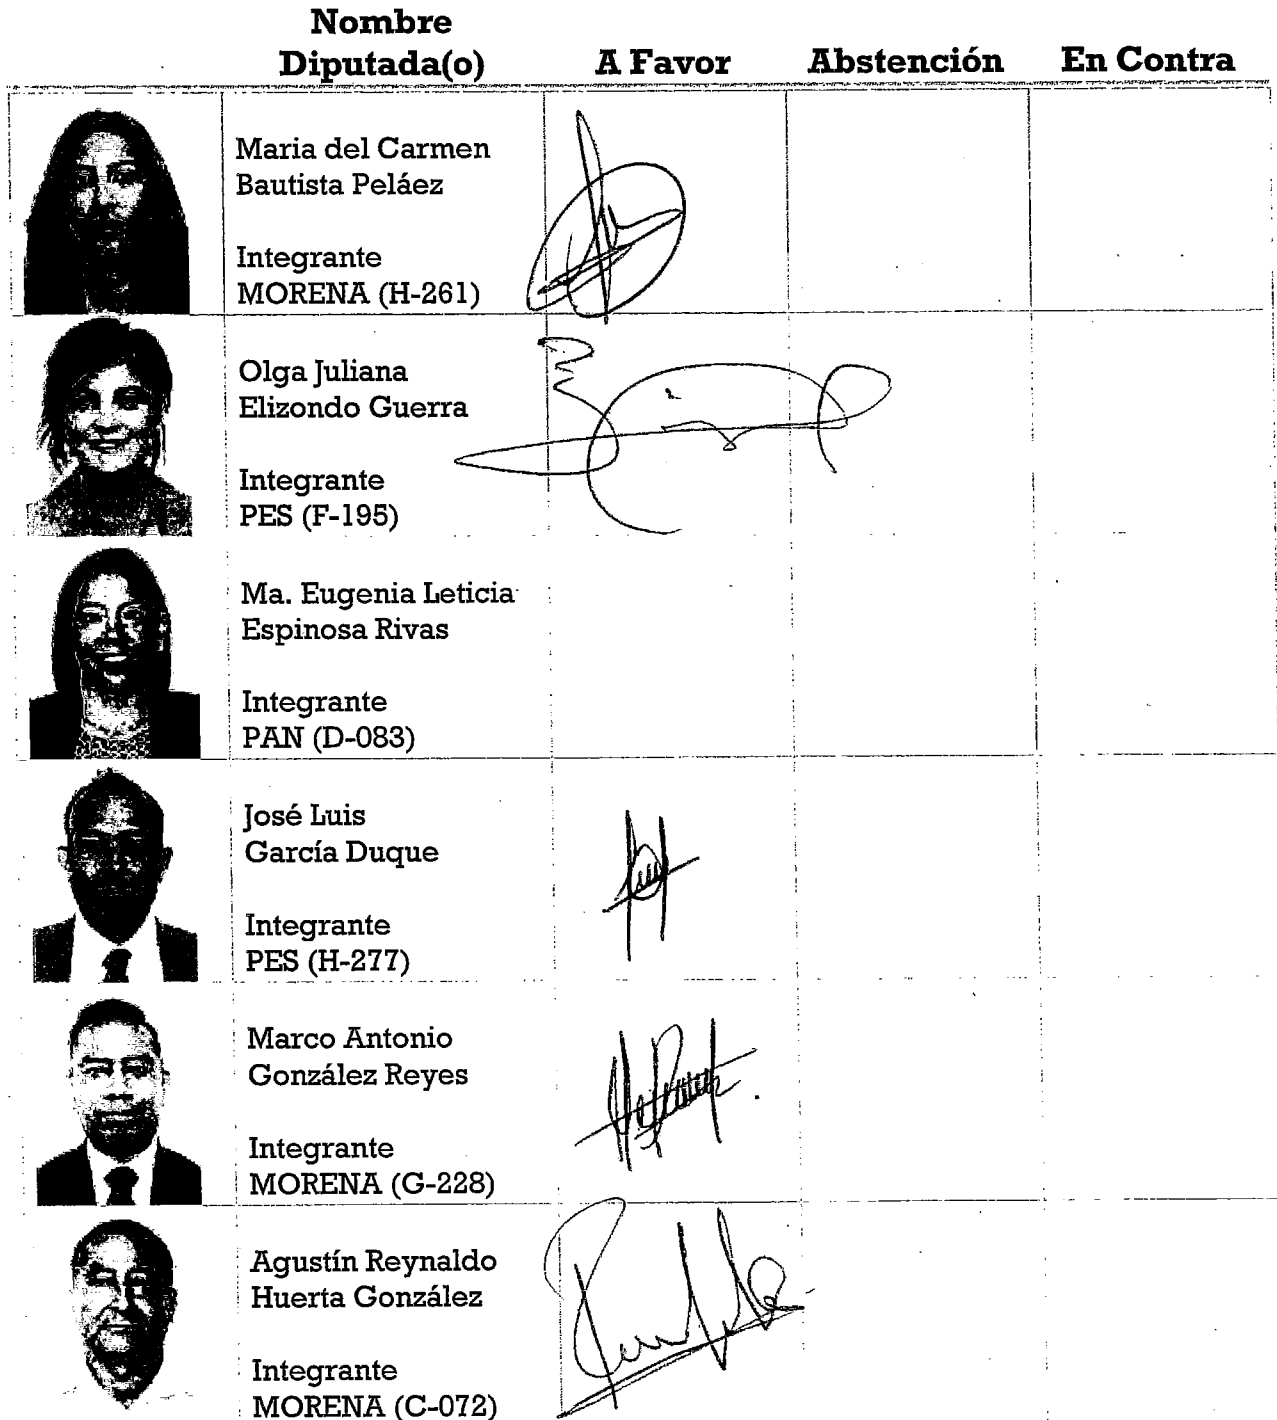 Nombre
Diputada(o) A Favor Abstención En Contra
Maria del Carmen
Bautista Peláez
Integrante
MORENA (H-261)
Olga Juliana
Elizondo Guerra
Integrante
PES (F-195)
Ma. Eugenia Leticia
Espinosa Rivas
Integrante
PAN (D-083)
José Luis
García Duque
Integrante
PES (H-277)
Marco Antonio
González Reyes
Integrante
MORENA (G-228)
Agustín Reynaldo
Huerta González
Integrante
MORENA (C-072)